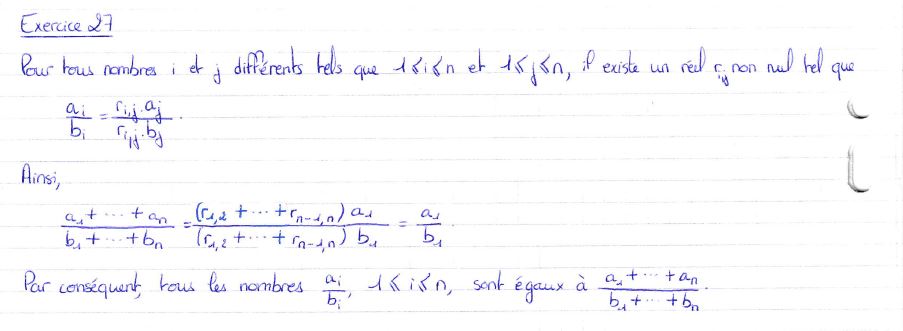 Exercice 27
Pour tous nombres i et j différents tels que 1 ≤ i ≤ n et 1 ≤ j ≤ n, il existe un réel r_{i,j} non nul tel que
a_i / b_i = (r_{i,j} · a_j) / (r_{i,j} · b_j) .
Ainsi,
(a_1 + ··· + a_n) / (b_1 + ··· + b_n) = ((r_{1,2} + ··· + r_{n-1,n}) a_1) / ((r_{1,2} + ··· + r_{n-1,n}) b_1) = a_1 / b_1 .
Par conséquent, tous les nombres a_i / b_i, 1 ≤ i ≤ n, sont égaux à (a_1 + ··· + a_n) / (b_1 + ··· + b_n) .